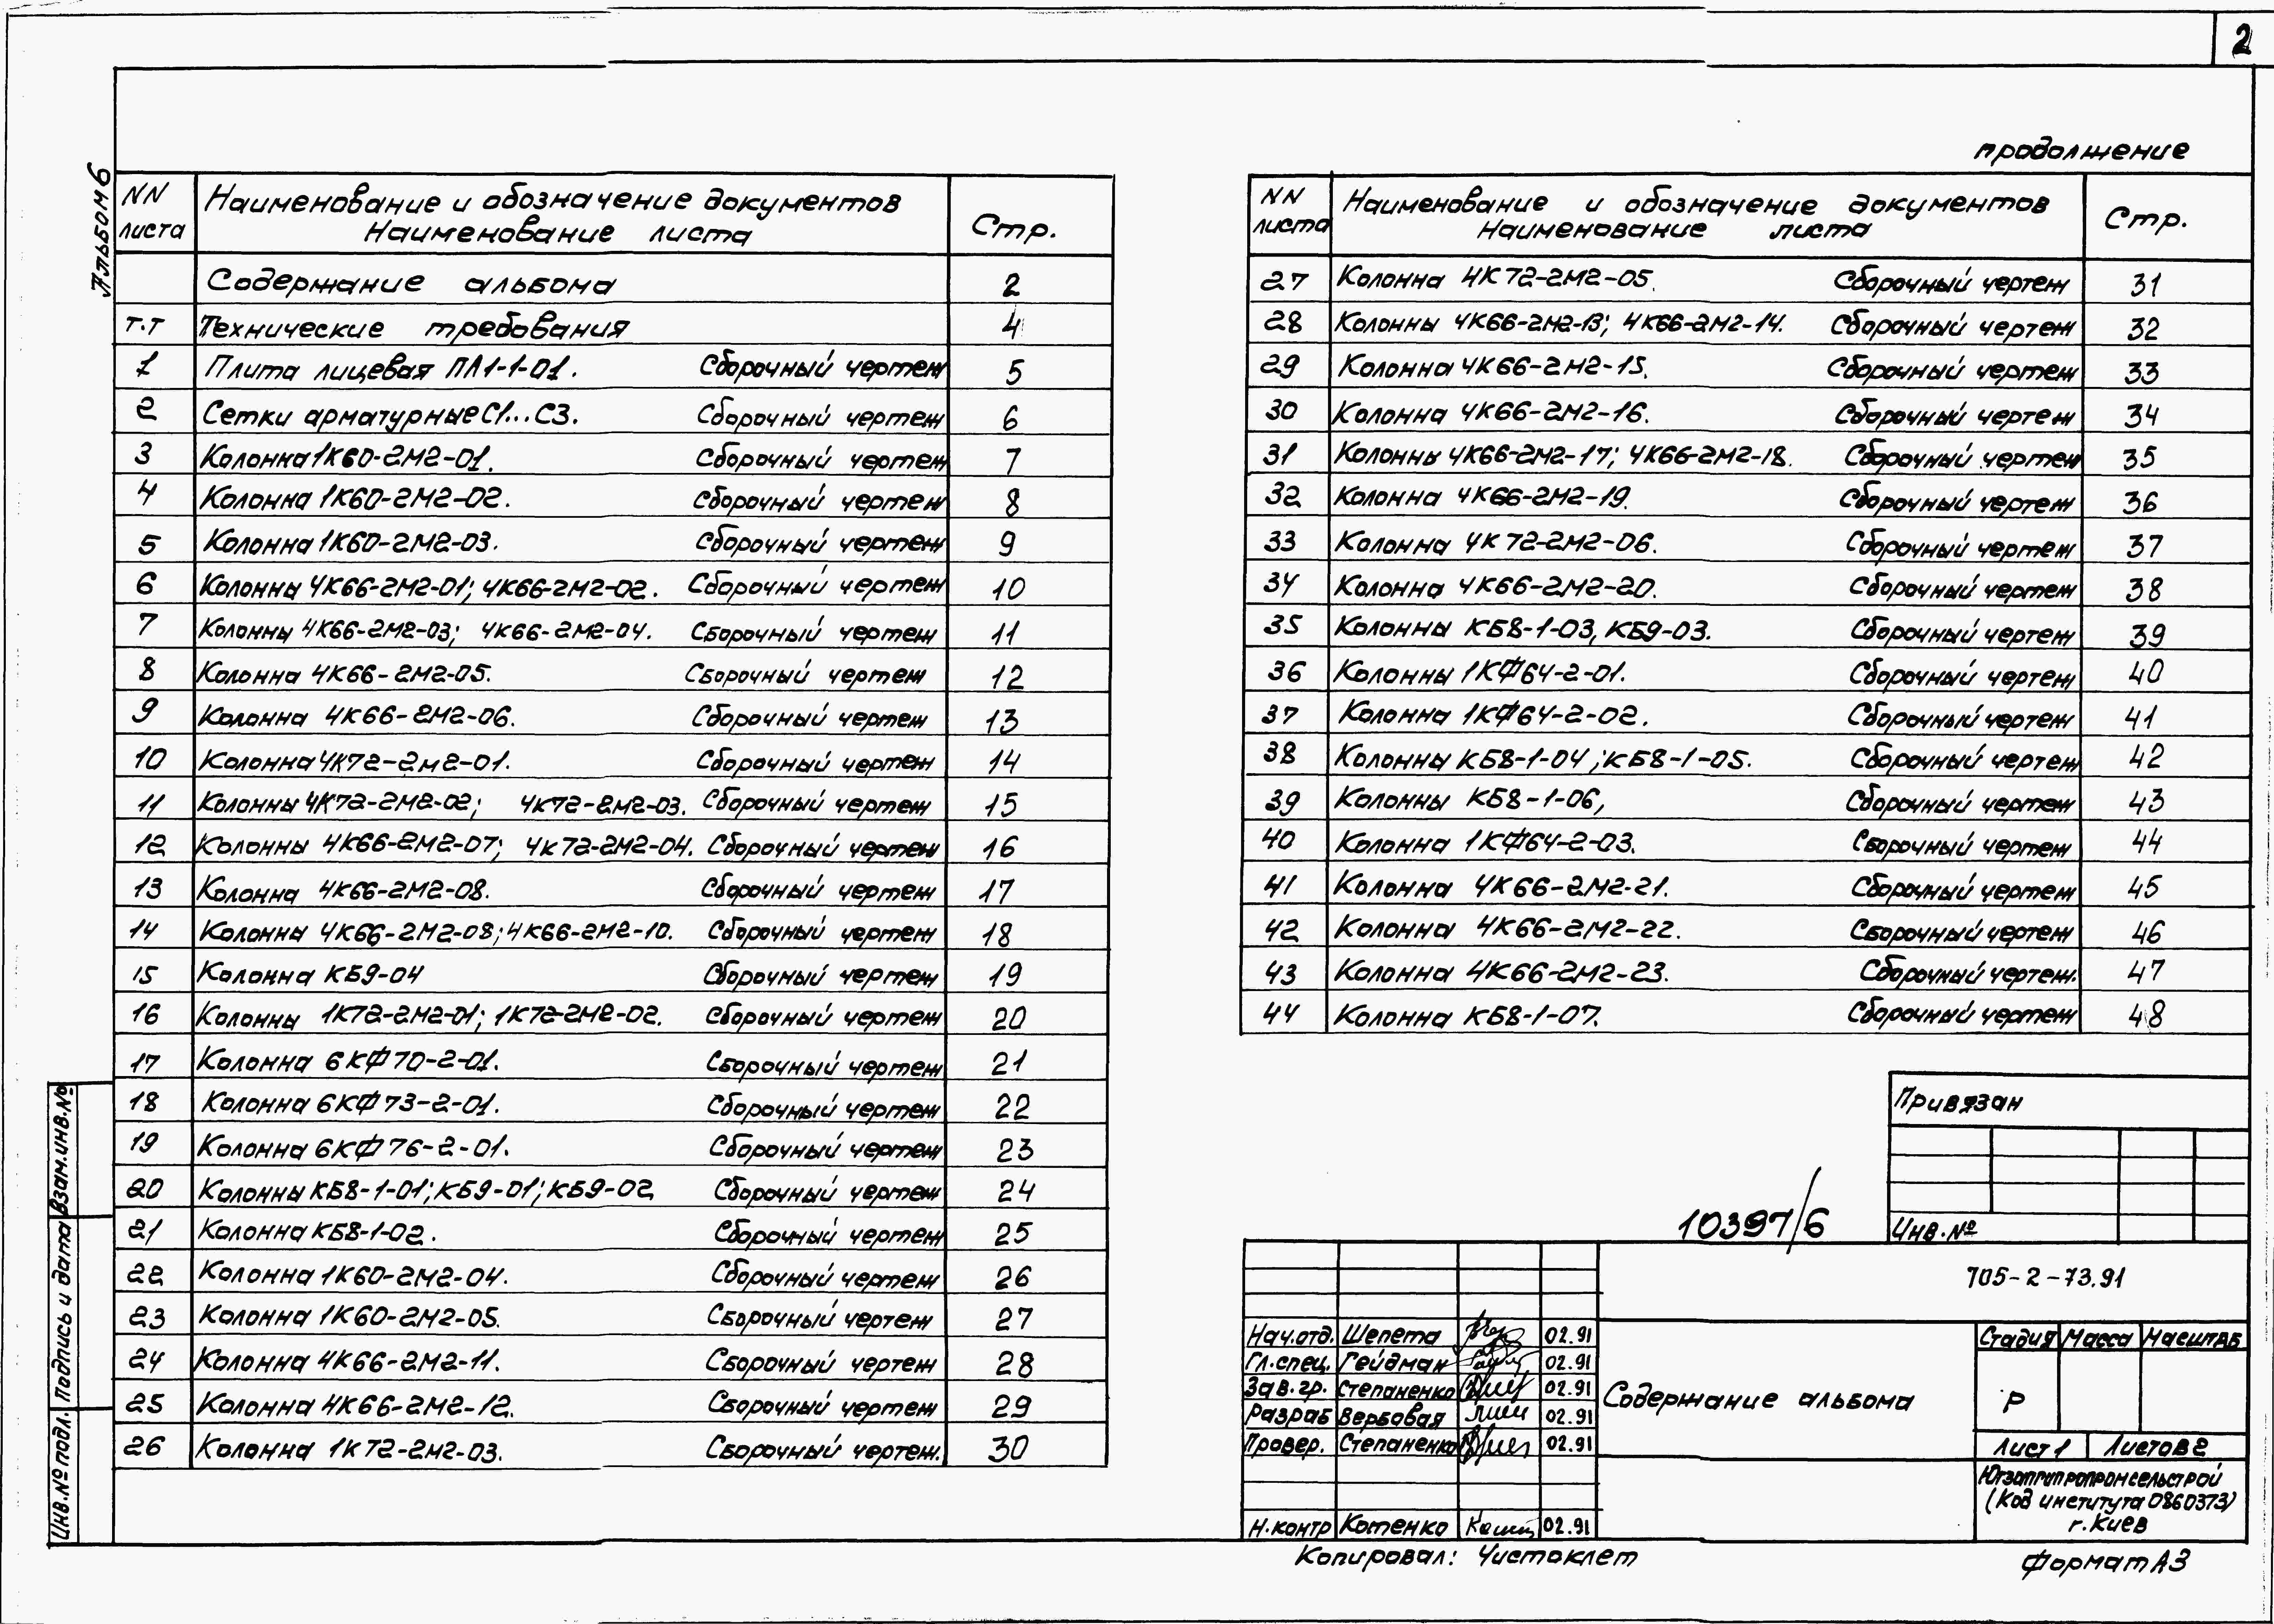 2
Альбом 6
NN листа Наименование и обозначение документов Наименование листа Стр.
Содержание альбома 2
т.т Технические требования 4
1 Плита лицевая ПЛ1-1-01. Сборочный чертеж 5
2 Сетки арматурные С1...С3. Сборочный чертеж 6
3 Колонна 1К60-2М2-01. Сборочный чертеж 7
4 Колонна 1К60-2М2-02. Сборочный чертеж 8
5 Колонна 1К60-2М2-03. Сборочный чертеж 9
6 Колонны 4К66-2М2-01; 4К66-2М2-02. Сборочный чертеж 10
7 Колонны 4К66-2М2-03; 4К66-2М2-04. Сборочный чертеж 11
8 Колонна 4К66-2М2-05. Сборочный чертеж 12
9 Колонна 4К66-2М2-06. Сборочный чертеж 13
10 Колонна 4К72-2М2-01. Сборочный чертеж 14
11 Колонны 4К72-2М2-02; 4К72-2М2-03. Сборочный чертеж 15
12 Колонны 4К66-2М2-07; 4К72-2М2-04. Сборочный чертеж 16
13 Колонна 4К66-2М2-08. Сборочный чертеж 17
14 Колонны 4К66-2М2-08; 4К66-2М2-10. Сборочный чертеж 18
15 Колонна КБ9-04 Сборочный чертеж 19
16 Колонны 1К72-2М2-01; 1К72-2М2-02. Сборочный чертеж 20
17 Колонна 6КФ70-2-01. Сборочный чертеж 21
18 Колонна 6КФ73-2-01. Сборочный чертеж 22
19 Колонна 6КФ76-2-01. Сборочный чертеж 23
20 Колонны КБ8-1-01; КБ9-01; КБ9-02 Сборочный чертеж 24
21 Колонна КБ8-1-02. Сборочный чертеж 25
22 Колонна 1К60-2М2-04. Сборочный чертеж 26
23 Колонна 1К60-2М2-05. Сборочный чертеж 27
24 Колонна 4К66-2М2-11. Сборочный чертеж 28
25 Колонна 4К66-2М2-12. Сборочный чертеж 29
26 Колонна 1К72-2М2-03. Сборочный чертеж. 30
продолжение
NN листа Наименование и обозначение документов Наименование листа Стр.
27 Колонна 4К72-2М2-05. Сборочный чертеж 31
28 Колонны 4К66-2М2-13; 4К66-2М2-14. Сборочный чертеж 32
29 Колонна 4К66-2М2-15. Сборочный чертеж 33
30 Колонна 4К66-2М2-16. Сборочный чертеж 34
31 Колонны 4К66-2М2-17; 4К66-2М2-18. Сборочный чертеж 35
32 Колонна 4К66-2М2-19. Сборочный чертеж 36
33 Колонна 4К72-2М2-06. Сборочный чертеж 37
34 Колонна 4К66-2М2-20. Сборочный чертеж 38
35 Колонны КБ8-1-03, КБ9-03. Сборочный чертеж 39
36 Колонны 1КФ64-2-01. Сборочный чертеж 40
37 Колонна 1КФ64-2-02. Сборочный чертеж 41
38 Колонны КБ8-1-04; КБ8-1-05. Сборочный чертеж 42
39 Колонны КБ8-1-06, Сборочный чертеж 43
40 Колонна 1КФ64-2-03. Сборочный чертеж 44
41 Колонна 4К66-2М2-21. Сборочный чертеж 45
42 Колонна 4К66-2М2-22. Сборочный чертеж 46
43 Колонна 4К66-2М2-23. Сборочный чертеж. 47
44 Колонна КБ8-1-07. Сборочный чертеж 48
Привязан
Инв.№
10397/6
705-2-73.91
Нач.отд. Шепета 02.91
Гл.спец. Гейдман 02.91
Зав.гр. Степаненко 02.91
Разраб Вербовая 02.91
Провер. Степаненко 02.91
Н.контр Котенко 02.91
Содержание альбома
Стадия Масса Масштаб
Р
Лист 1 Листов 2
Югзапгипропромсельстрой
(Код института 0860373)
г.Киев
Копировал: Чистоклет
Формат А3
Взам.инв.№
Подпись и дата
Инв.№ подл.